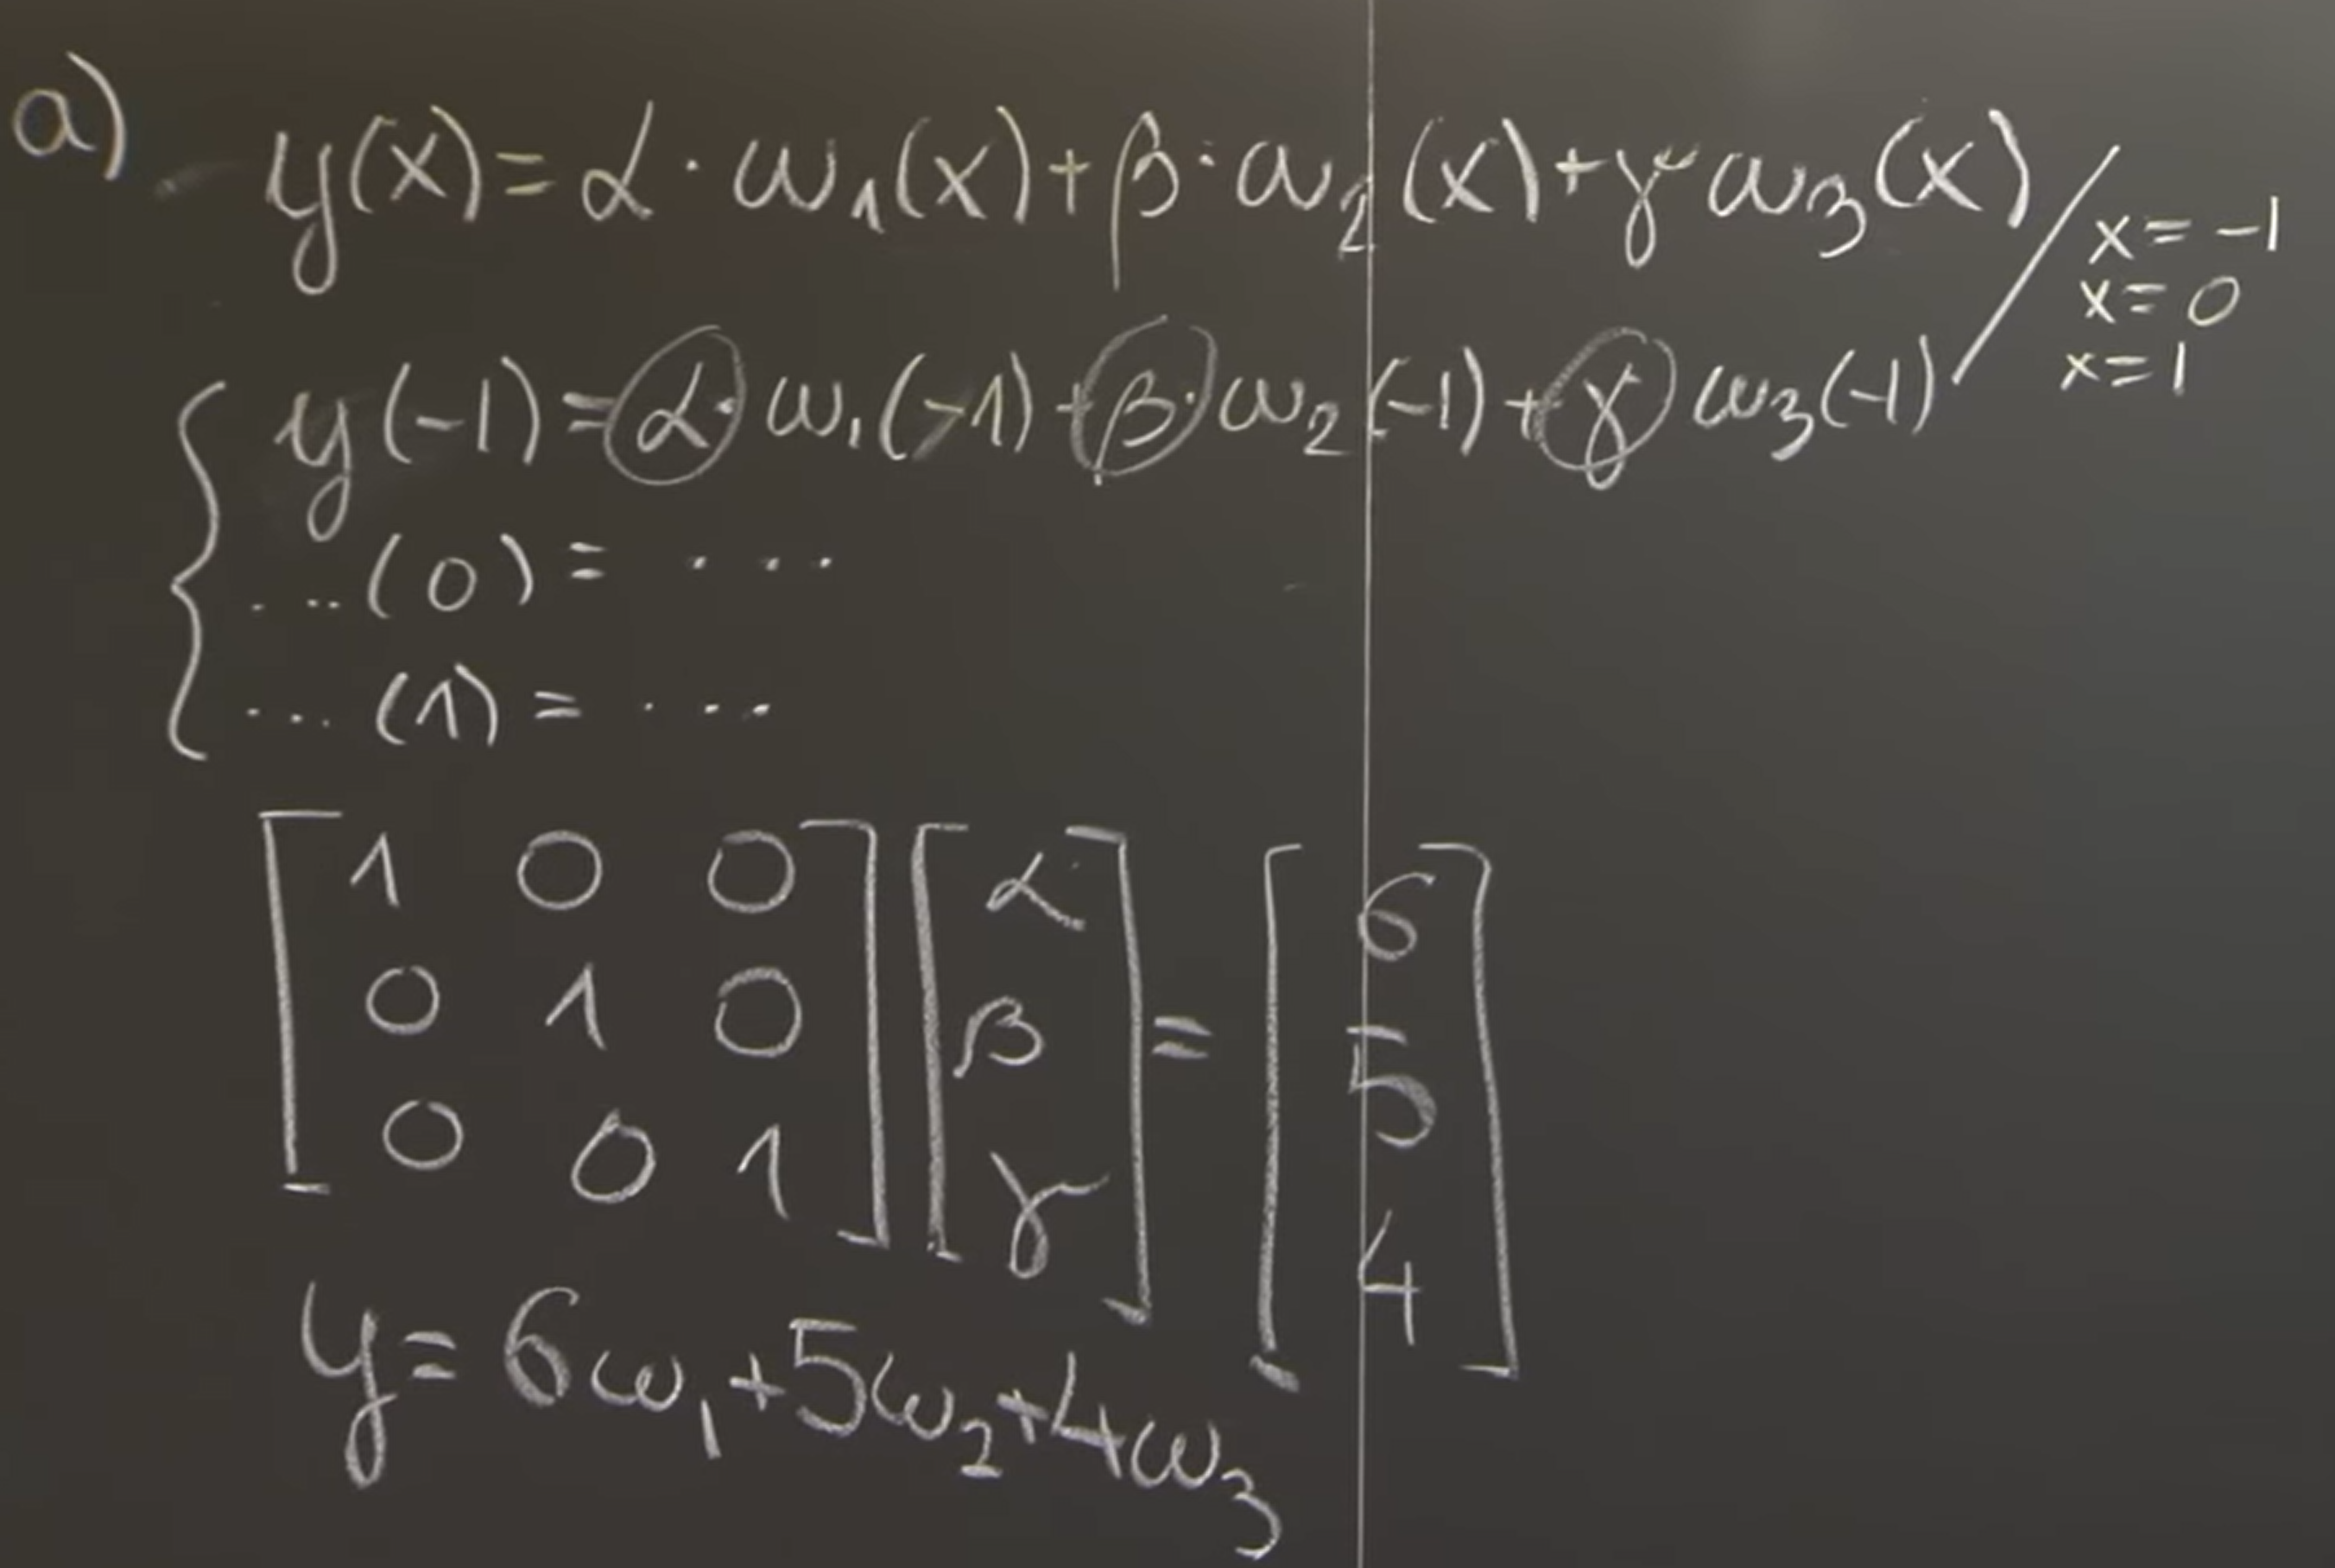 a) y(x) = α · ω₁(x) + β · ω₂(x) + γ · ω₃(x) / x = -1
x = 0
x = 1
y(-1) = α · ω₁(-1) + β · ω₂(-1) + γ ω₃(-1)
...(0) = ...
...(1) = ...
[1 0 0] [α] = [6]
[0 1 0] [β] [5]
[0 0 1] [γ] [4]
y = 6ω₁ + 5ω₂ + 4ω₃